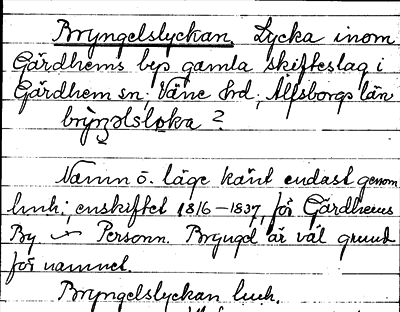 Bryngelslyckan Lycka inom
Gärdhems bys gamla skifteslag i
Gärdhem sn, Väne hrd, Älfsborgs län
bry̆ŋəlsloka ?
Namn o. läge känt endast genom
lmh; enskiftet 1816-1837, för Gärdhems
By Personn. Bryngel är väl grund
för namnet.
Bryngelslyckan lmh.